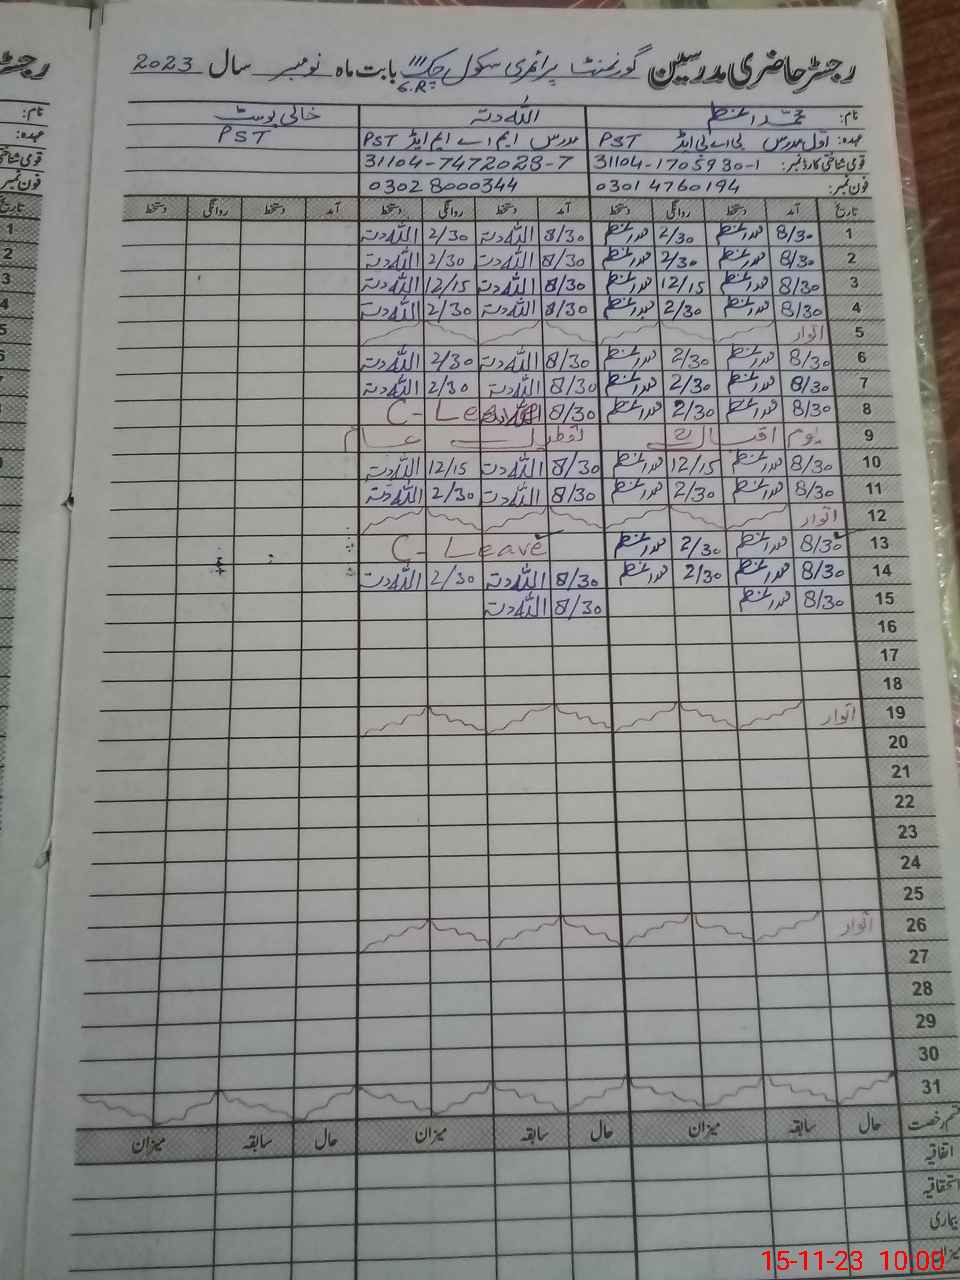 رجسٹر حاضری مدرسین گورنمنٹ پرائمری سکول چک 111 بابت ماہ نومبر سال 2023
6.R
نام: محمد اعظم اللہ دتہ خالی پوسٹ
عہدہ: اول مدرس بی اے بی ایڈ PST مدرس ایم اے ایم ایڈ PST PST
قومی شناختی کارڈ نمبر: 31104-1705930-1 31104-7472028-7
فون نمبر: 03014760194 03028000344
تاریخ آمد دستخط روانگی دستخط آمد دستخط روانگی دستخط آمد دستخط روانگی دستخط
1 8/30 2/30 8/30 اللہ دتہ 2/30 اللہ دتہ
2 8/30 2/30 8/30 اللہ دتہ 2/30 اللہ دتہ
3 8/30 12/15 8/30 اللہ دتہ 12/15 اللہ دتہ
4 8/30 2/30 8/30 اللہ دتہ 2/30 اللہ دتہ
5 اتوار
6 8/30 2/30 8/30 اللہ دتہ 2/30 اللہ دتہ
7 8/30 2/30 8/30 اللہ دتہ 2/30 اللہ دتہ
8 8/30 2/30 8/30 C-Leave
9 یوم اقبال تعطیل عام
10 8/30 12/15 8/30 اللہ دتہ 12/15 اللہ دتہ
11 8/30 2/30 8/30 اللہ دتہ 2/30 اللہ دتہ
12 اتوار
13 8/30 2/30 C-Leave
14 8/30 2/30 8/30 اللہ دتہ 2/30 اللہ دتہ
15 8/30 8/30 اللہ دتہ
16
17
18
19 اتوار
20
21
22
23
24
25
26 اتوار
27
28
29
30
31
قسم رخصت حال سابقہ میزان حال سابقہ میزان حال سابقہ میزان
اتفاقیہ
استحقاقیہ
بیماری
میزان
15-11-23 10:09